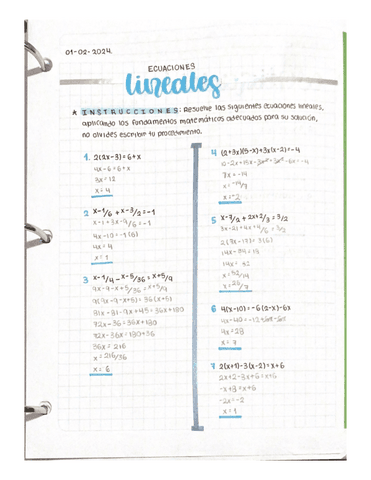 01-02-2024.
ECUACIONES
lineales
★ INSTRUCCIONES: Resuelve las siguientes ecuaciones lineales,
aplicando los fundamentos matemáticos adecuados para su solución,
no olvides escribir tu procedimiento.
1. 2(2x-3)=6+x
4x-6=6+x
3x=12
x=4
2 x-1/6 + x-3/2=-1
x-1+3x-9/6=-1
4x-10=-1(6)
4x=4
x=1
3 x-1/4-x-5/36=x+5/9
9x-9-x+5/36=x+5/9
9(9x-9-x+5)=36(x+5)
81x-81-9x+45=36x+180
72x-36=36x+180
72x-36x=180+36
36x=216
x=216/36
x=6
4 (2+3x)(5-x)+3x(x-2)=-4
7x=-14
x=-14/7
x=-2
5 x-7/2+2x+2/3=3/2
14x-34=18
14x=52
x=52/14
x=26/7
6 4(x-10)=-6(2-x)-6x
4x-40=-12+6x-6x
4x=28
x=7
7 2(x+1)-3(x-2)=x+6
2x+2-3x+6=x+6
-x+8=x+6
-2x=-2
x=1